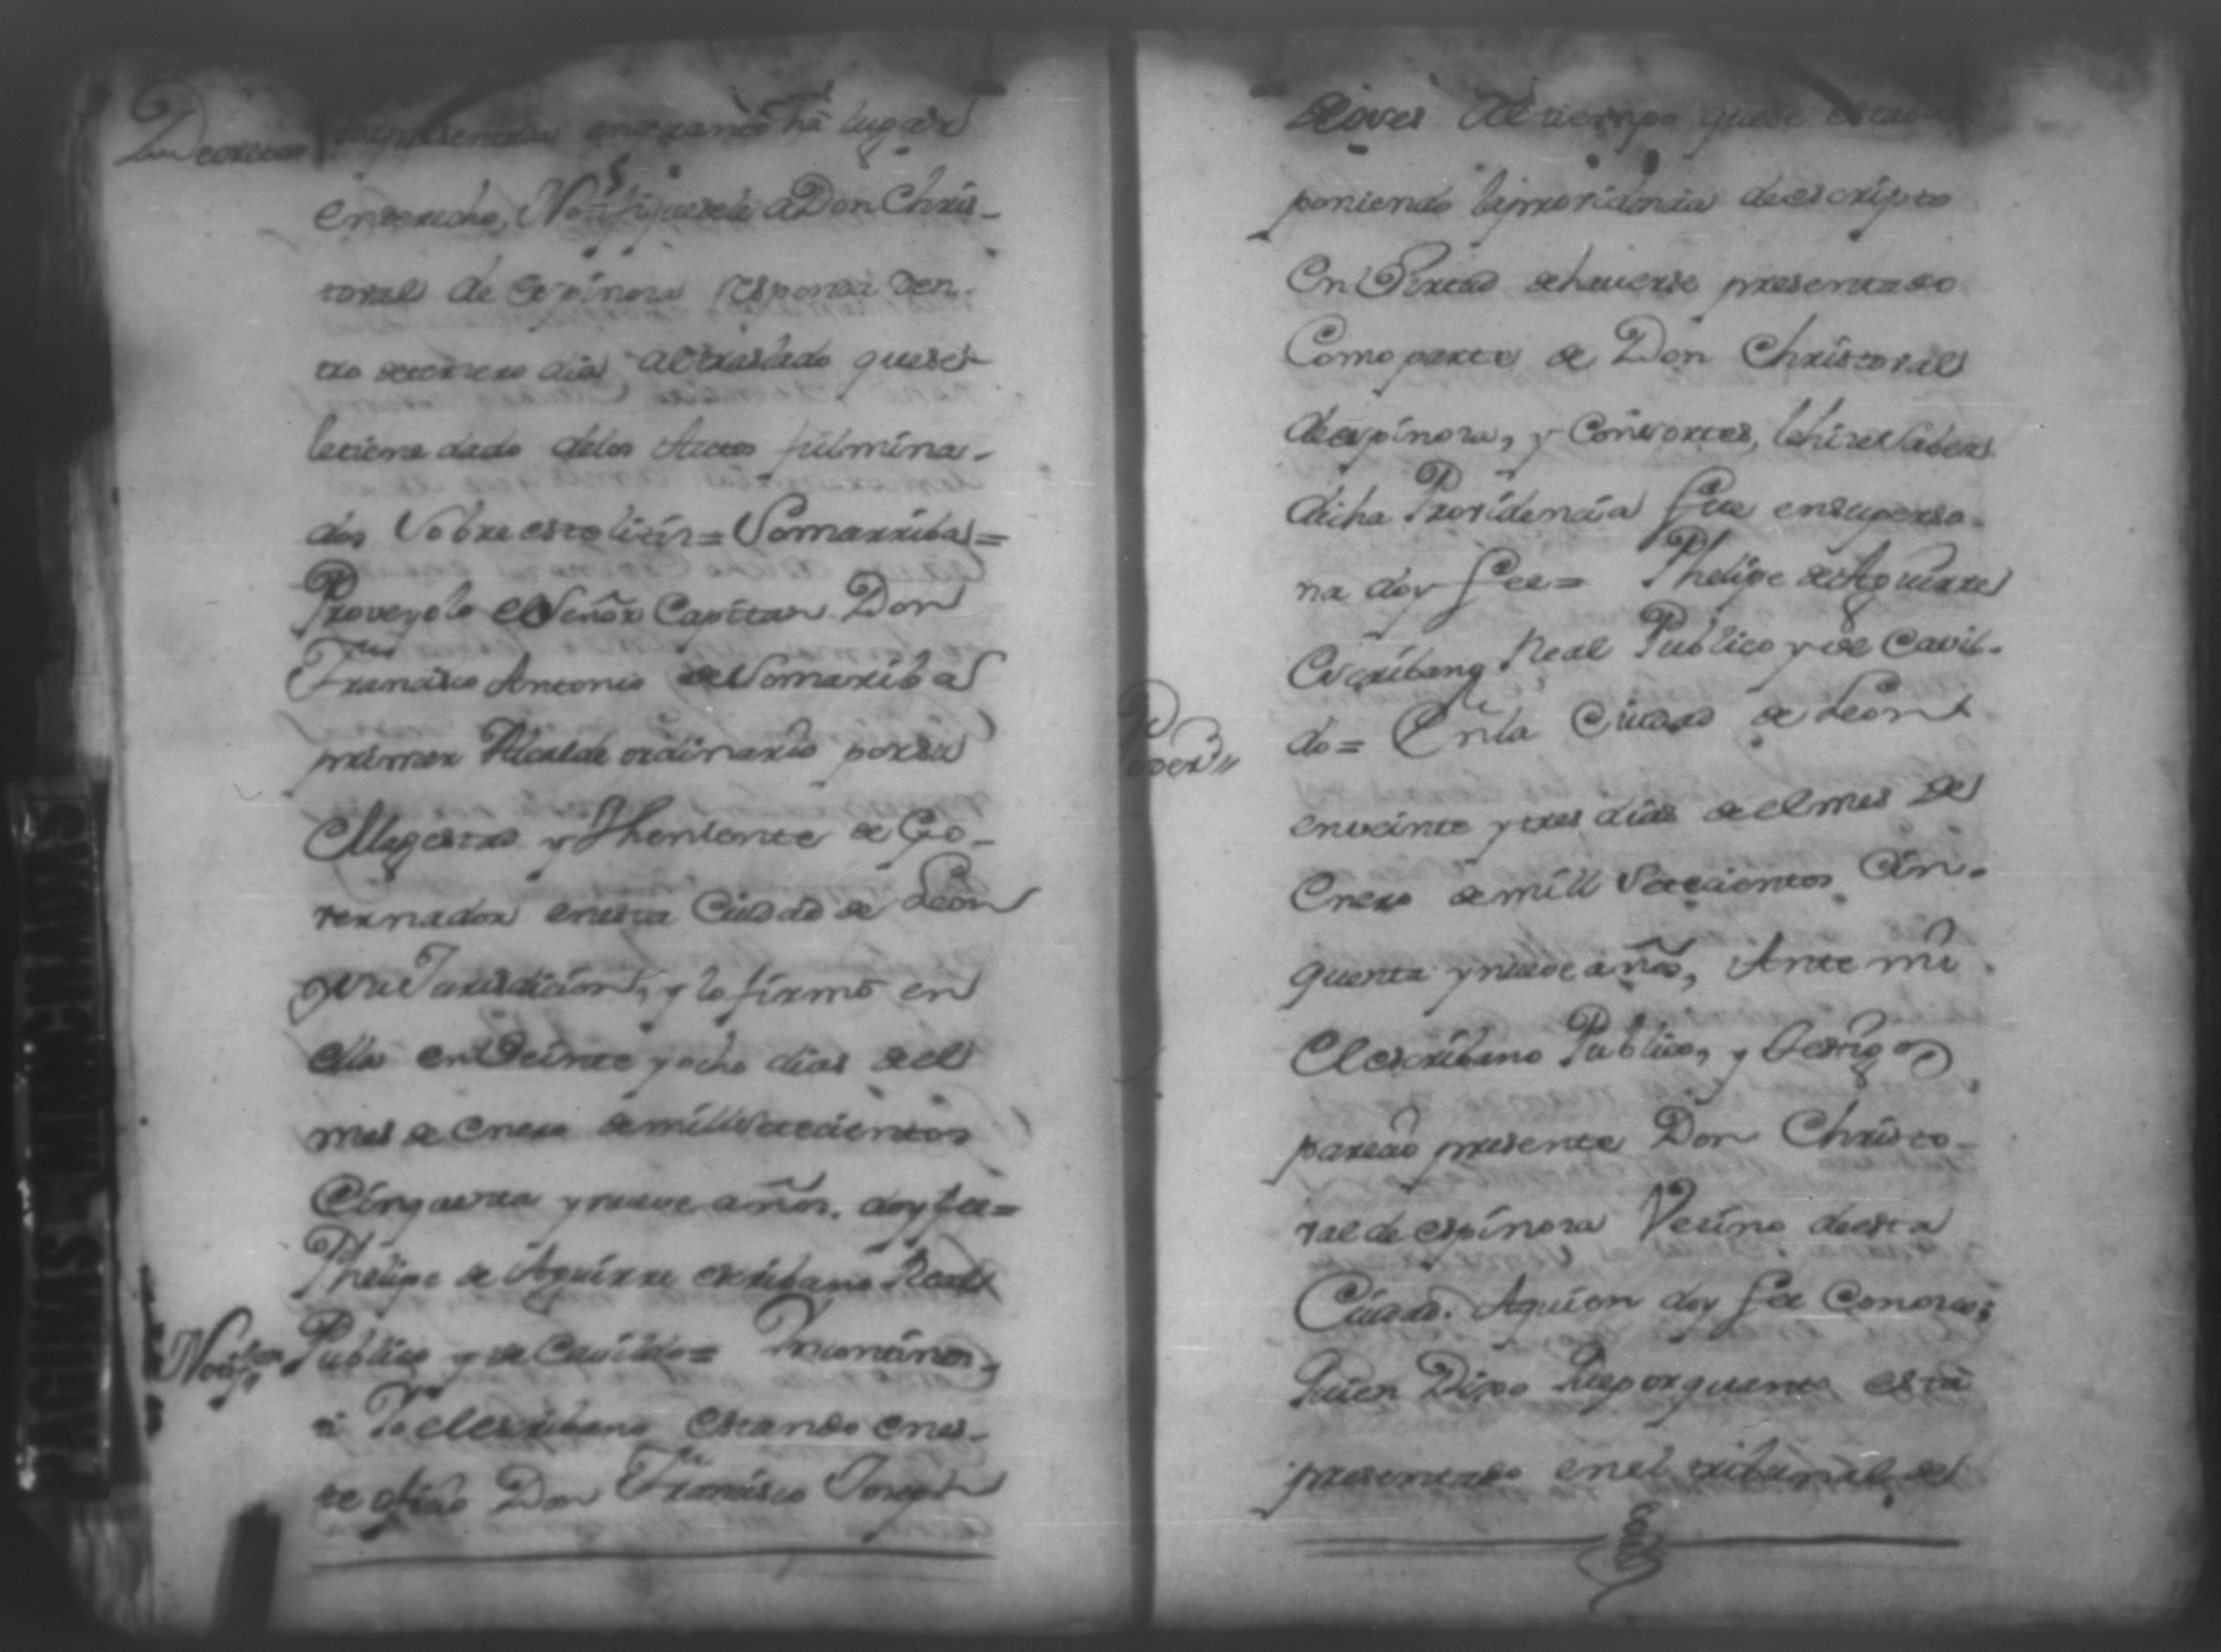 Decreto por presentada en quanto hà lugar
en derecho, Notifiquesele a Don Chris-
toval de Espinoza responda den-
tro de tercero dia, al traslado que se
le tiene dado delos Autos fulmina-
dos Sobre este litis = Somarriba =
Proveyolo el Señor Capitan Don
Francisco Antonio de Somarriba
primer Alcalde ordinario por su
Magestad y Theniente de Go-
vernador en esta Ciudad de Leon
y su Jurisdicion, y lo firmó en
ella en Veinte y ocho dias del
mes de Enero de mill Setecientos
Cinquenta y nueve años. doy fee =
Phelipe de Aguirre escribano Real
Publico y de Cavildo = Yncontinen-
Noti.on
ti Yo el escribano estando en es-
te ofisio Don Francisco Joseph
Al tiempo que se
poniendo la providencia de escripto
En Virtud de haverse presentado
Como parte de Don Christoval
de espinoza, y Consortes, le hize saber
dicha Providencia fue en su perso-
na doy fee = Phelipe de Aguirre
Escribano Real Publico y de Cavil-
do = En la Ciudad de Leon
Poder
en veinte y tres dias de el mes de
Enero de mill Setecientos Cin-
quenta y nueve años, Ante mi
El escribano Publico, y testigos
pareció presente Don Christo-
val de espinoza Vecino de esta
Ciudad. Aquien doy fee Conosco;
Quien Dixo Que por quanto está
presentado en el tribunal de